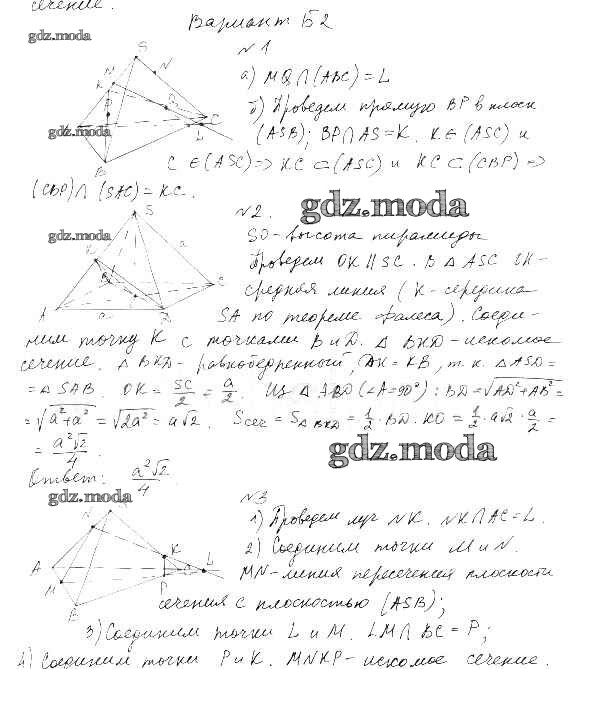 сечение.
Вариант Б2
gdz.moda
№1
а) MQ ∩ (ABC) = L
б) Проведем прямую BP в плоск
(ASB); BP ∩ AS = K. K ∈ (ASC) и
C ∈ (ASC) => KC ⊂ (ASC) и KC ⊂ (CBP) =>
(CBP) ∩ (SAC) = KC.
S
M
N
K
P
Q
C
L
B
gdz.moda
№2.
gdz.moda
SO - высота пирамиды
gdz.moda
Проведем OK || SC. В Δ ASC OK -
средняя линия (K - середина
SA по теореме Фалеса). Соеди-
ним точку K с точками B и D. Δ BKD - искомое
сечение. Δ BKD - равнобедренный, DK = KB, т.к. Δ ASD =
= Δ SAB. OK = SC/2 = a/2. Из Δ ABD (∠A = 90°): BD = √AD² + AB² =
= √a² + a² = √2a² = a√2. Sсеч = SΔBKD = 1/2 · BD · KO = 1/2 · a√2 · a/2 =
= a²√2/4
S
a
K
C
A
a
D
gdz.moda
Ответ: a²√2/4
gdz.moda
№3
1) Проведем луч NK. NK ∩ AC = L.
2) Соединим точки M и N.
MN - линия пересечения плоскости
сечения с плоскостью (ASB);
3) Соединим точки L и M. LM ∩ BC = P;
4) Соединим точки P и K. MNKP - искомое сечение.
S
N
K
A
L
M
B